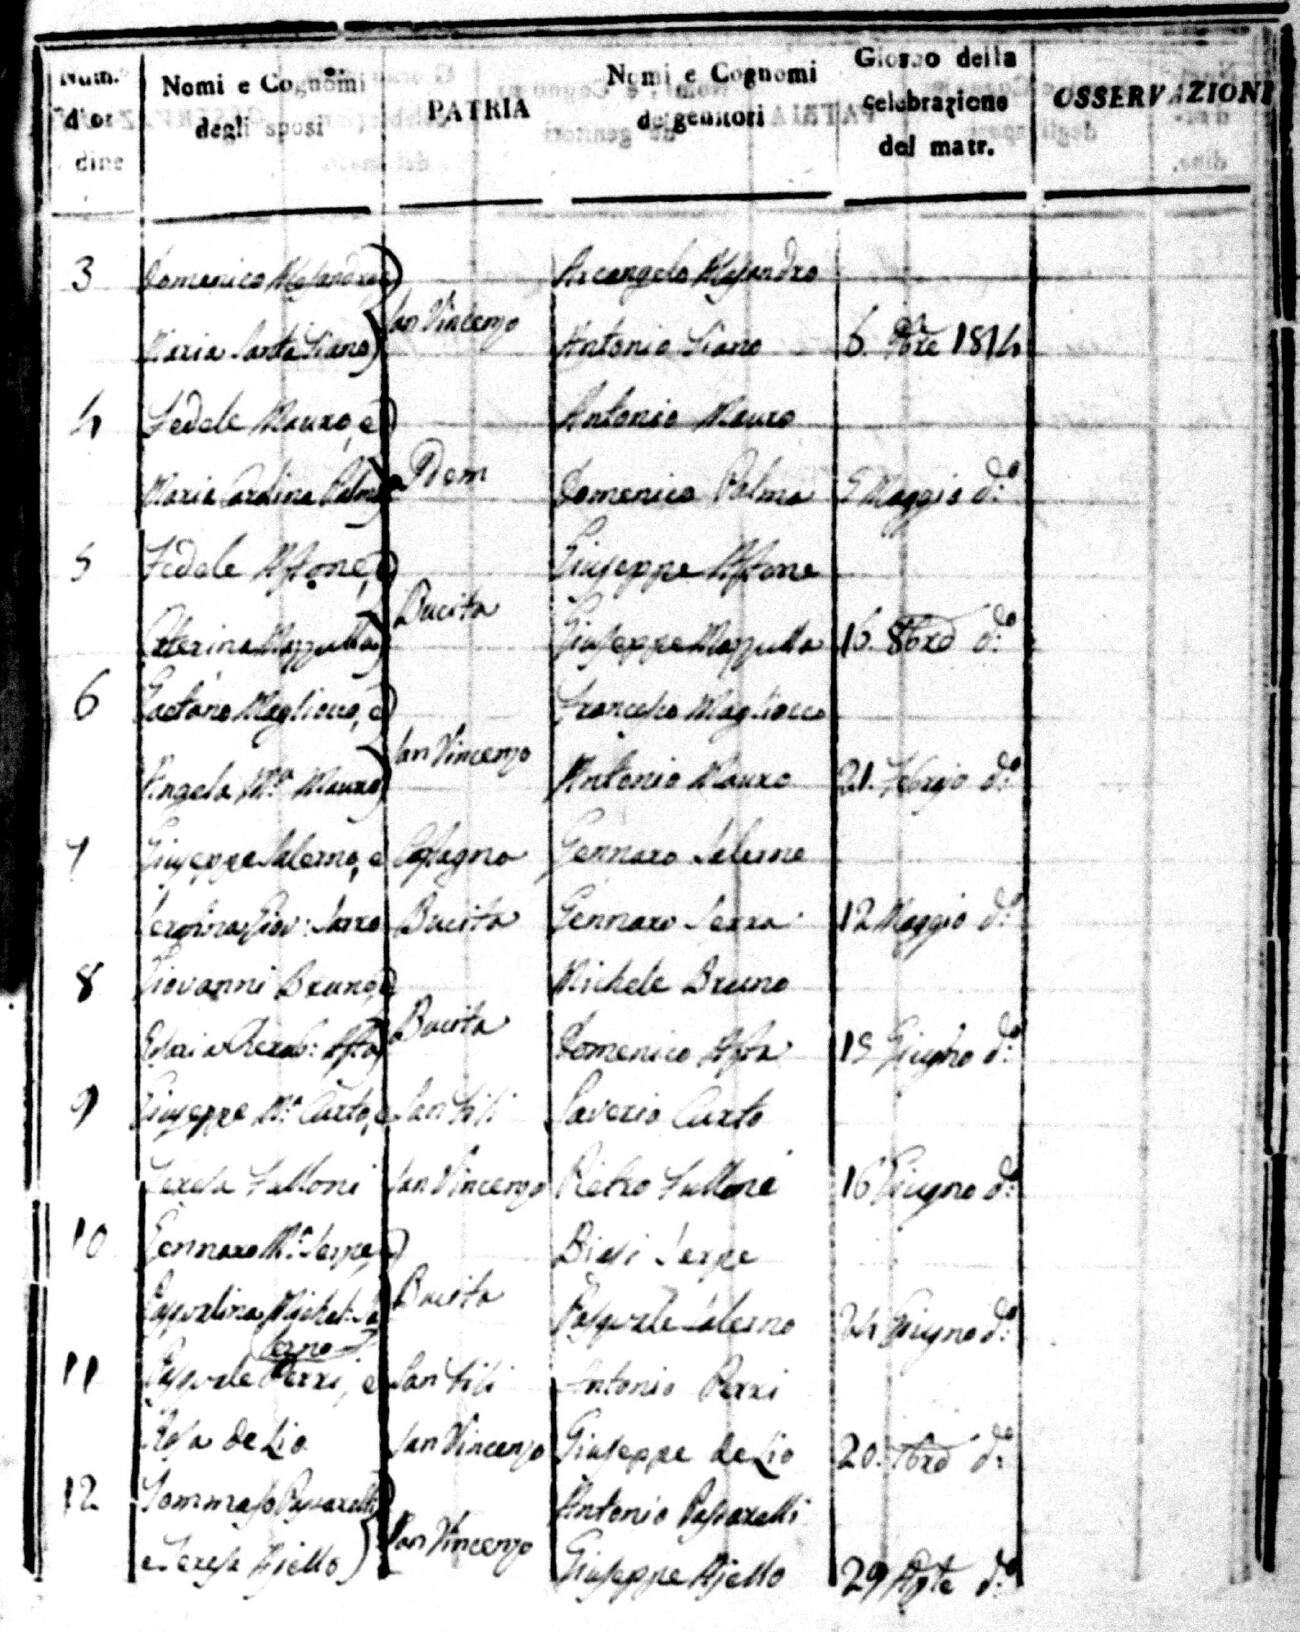 Num.o
d'or
dine
Nomi e Cognomi
degli sposi
PATRIA
Nomi e Cognomi
de genitori
Giorno della
celebrazione
del matr.
OSSERVAZIONI
3 Domenico Alesandro e Arcangelo Alesandro
San Vincenzo
Maria Santa Siano Antonio Siano 6. 1814
4 Fedele Mauro, e Antonio Mauro
Idem
Maria Carolina Palma Domenico Palma 5 Maggio d.o
5 Fedele Astone, e Giuseppe Astone
Bucita
Caterina Mazzulla Giuseppe Mazzulla 16. 8bre d.o
6 Gaetano Magliocco, e Francesco Magliocco
San Vincenzo
Angela M.a Mauro Antonio Mauro 21. d.o
7 Giuseppe Salerno, e Castagna Gennaro Salerno
Serafina Giov: Serra Bucita Gennaro Serra 12 Maggio d.o
8 Giovanni Bruno, e Michele Bruno
Bucita
Maria Asta Domenico Asta 15 Giugno d.o
9 Giuseppe M.a Curto, e San Fili Saverio Curto
Teresa Fulloni San Vincenzo Pietro Fullone 16 Giugno d.o
10 Gennaro M.a Serpe, e Biasi Serpe
Bucita
Pasqualina Michel: Sa Pasquale Salerno 24 Giugno d.o
lerno
11 Pasquale Perri, e San Fili Antonio Perri
Rosa de Lio San Vincenzo Giuseppe de Lio 20. d.o
12 Tommaso Passarelli Antonio Passarelli
San Vincenzo
e Teresa Ajello Giuseppe Ajello 29 d.o